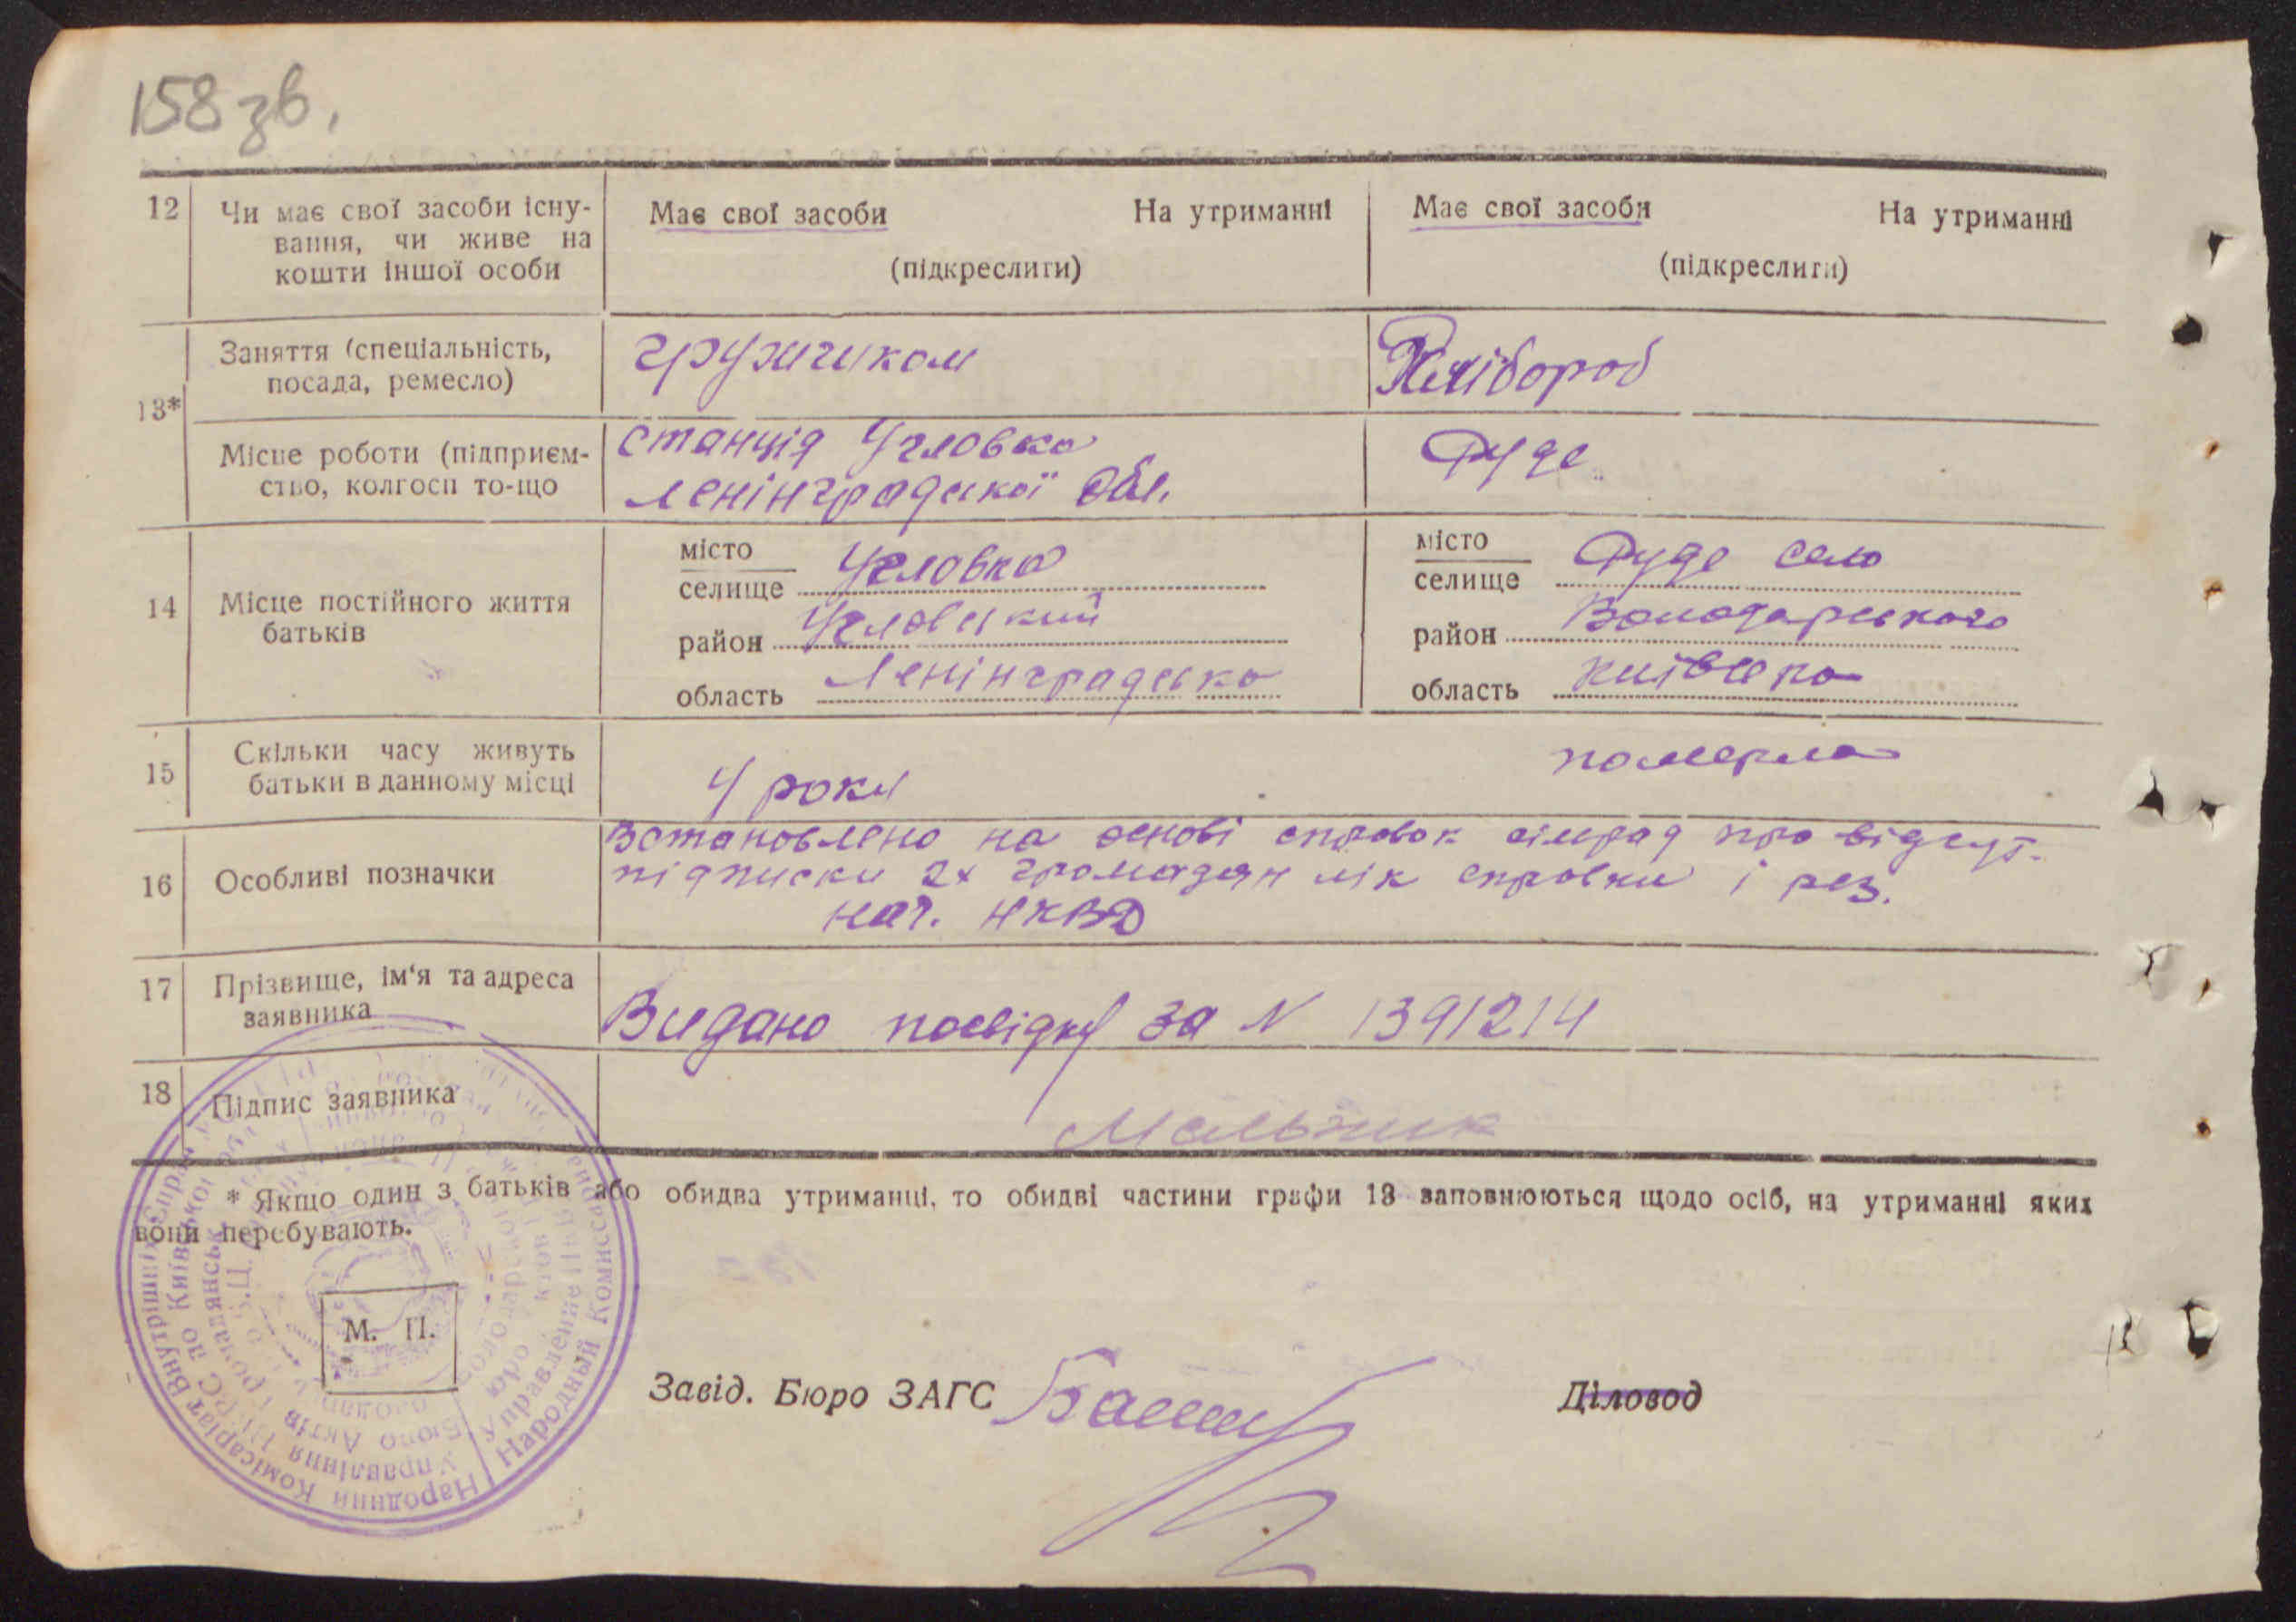 158 зв.
12 Чи має свої засоби існу-
вання, чи живе на
кошти іншої особи
Має свої засоби На утриманні
(підкреслити)
Має свої засоби На утриманні
(підкреслити)
13*
Заняття (спеціальність,
посада, ремесло)
грузчиком
Хлібороб
Місце роботи (підприєм-
ство, колгосп то-що
станція Угловка
Ленінградської Обл.
Руде
14 Місце постійного життя
батьків
місто
селище Угловка
район Угловський
область Ленінградська
місто
селище Руде село
район Володарського
область Київська
15 Скільки часу живуть
батьки в данному місці
4 роки
померла
16 Особливі позначки
Встановлено на основі справок сільрад про відсут.
підписки 2х громадян лік справки і рез.
нач. НКВД
17 Прізвище, ім'я та адреса
заявника
Видано посвідку за N 1391214
18 Підпис заявника
Мельник
* Якщо один з батьків або обидва утриманці, то обидві частини графи 13 заповнюються щодо осіб, на утриманні яких
вони перебувають.
Народний Комісаріат Внутрішніх Справ
Народный Комиссариат
Управління по Київській
Управление
Бюро Актів
М. П.
Завід. Бюро ЗАГС
Діловод